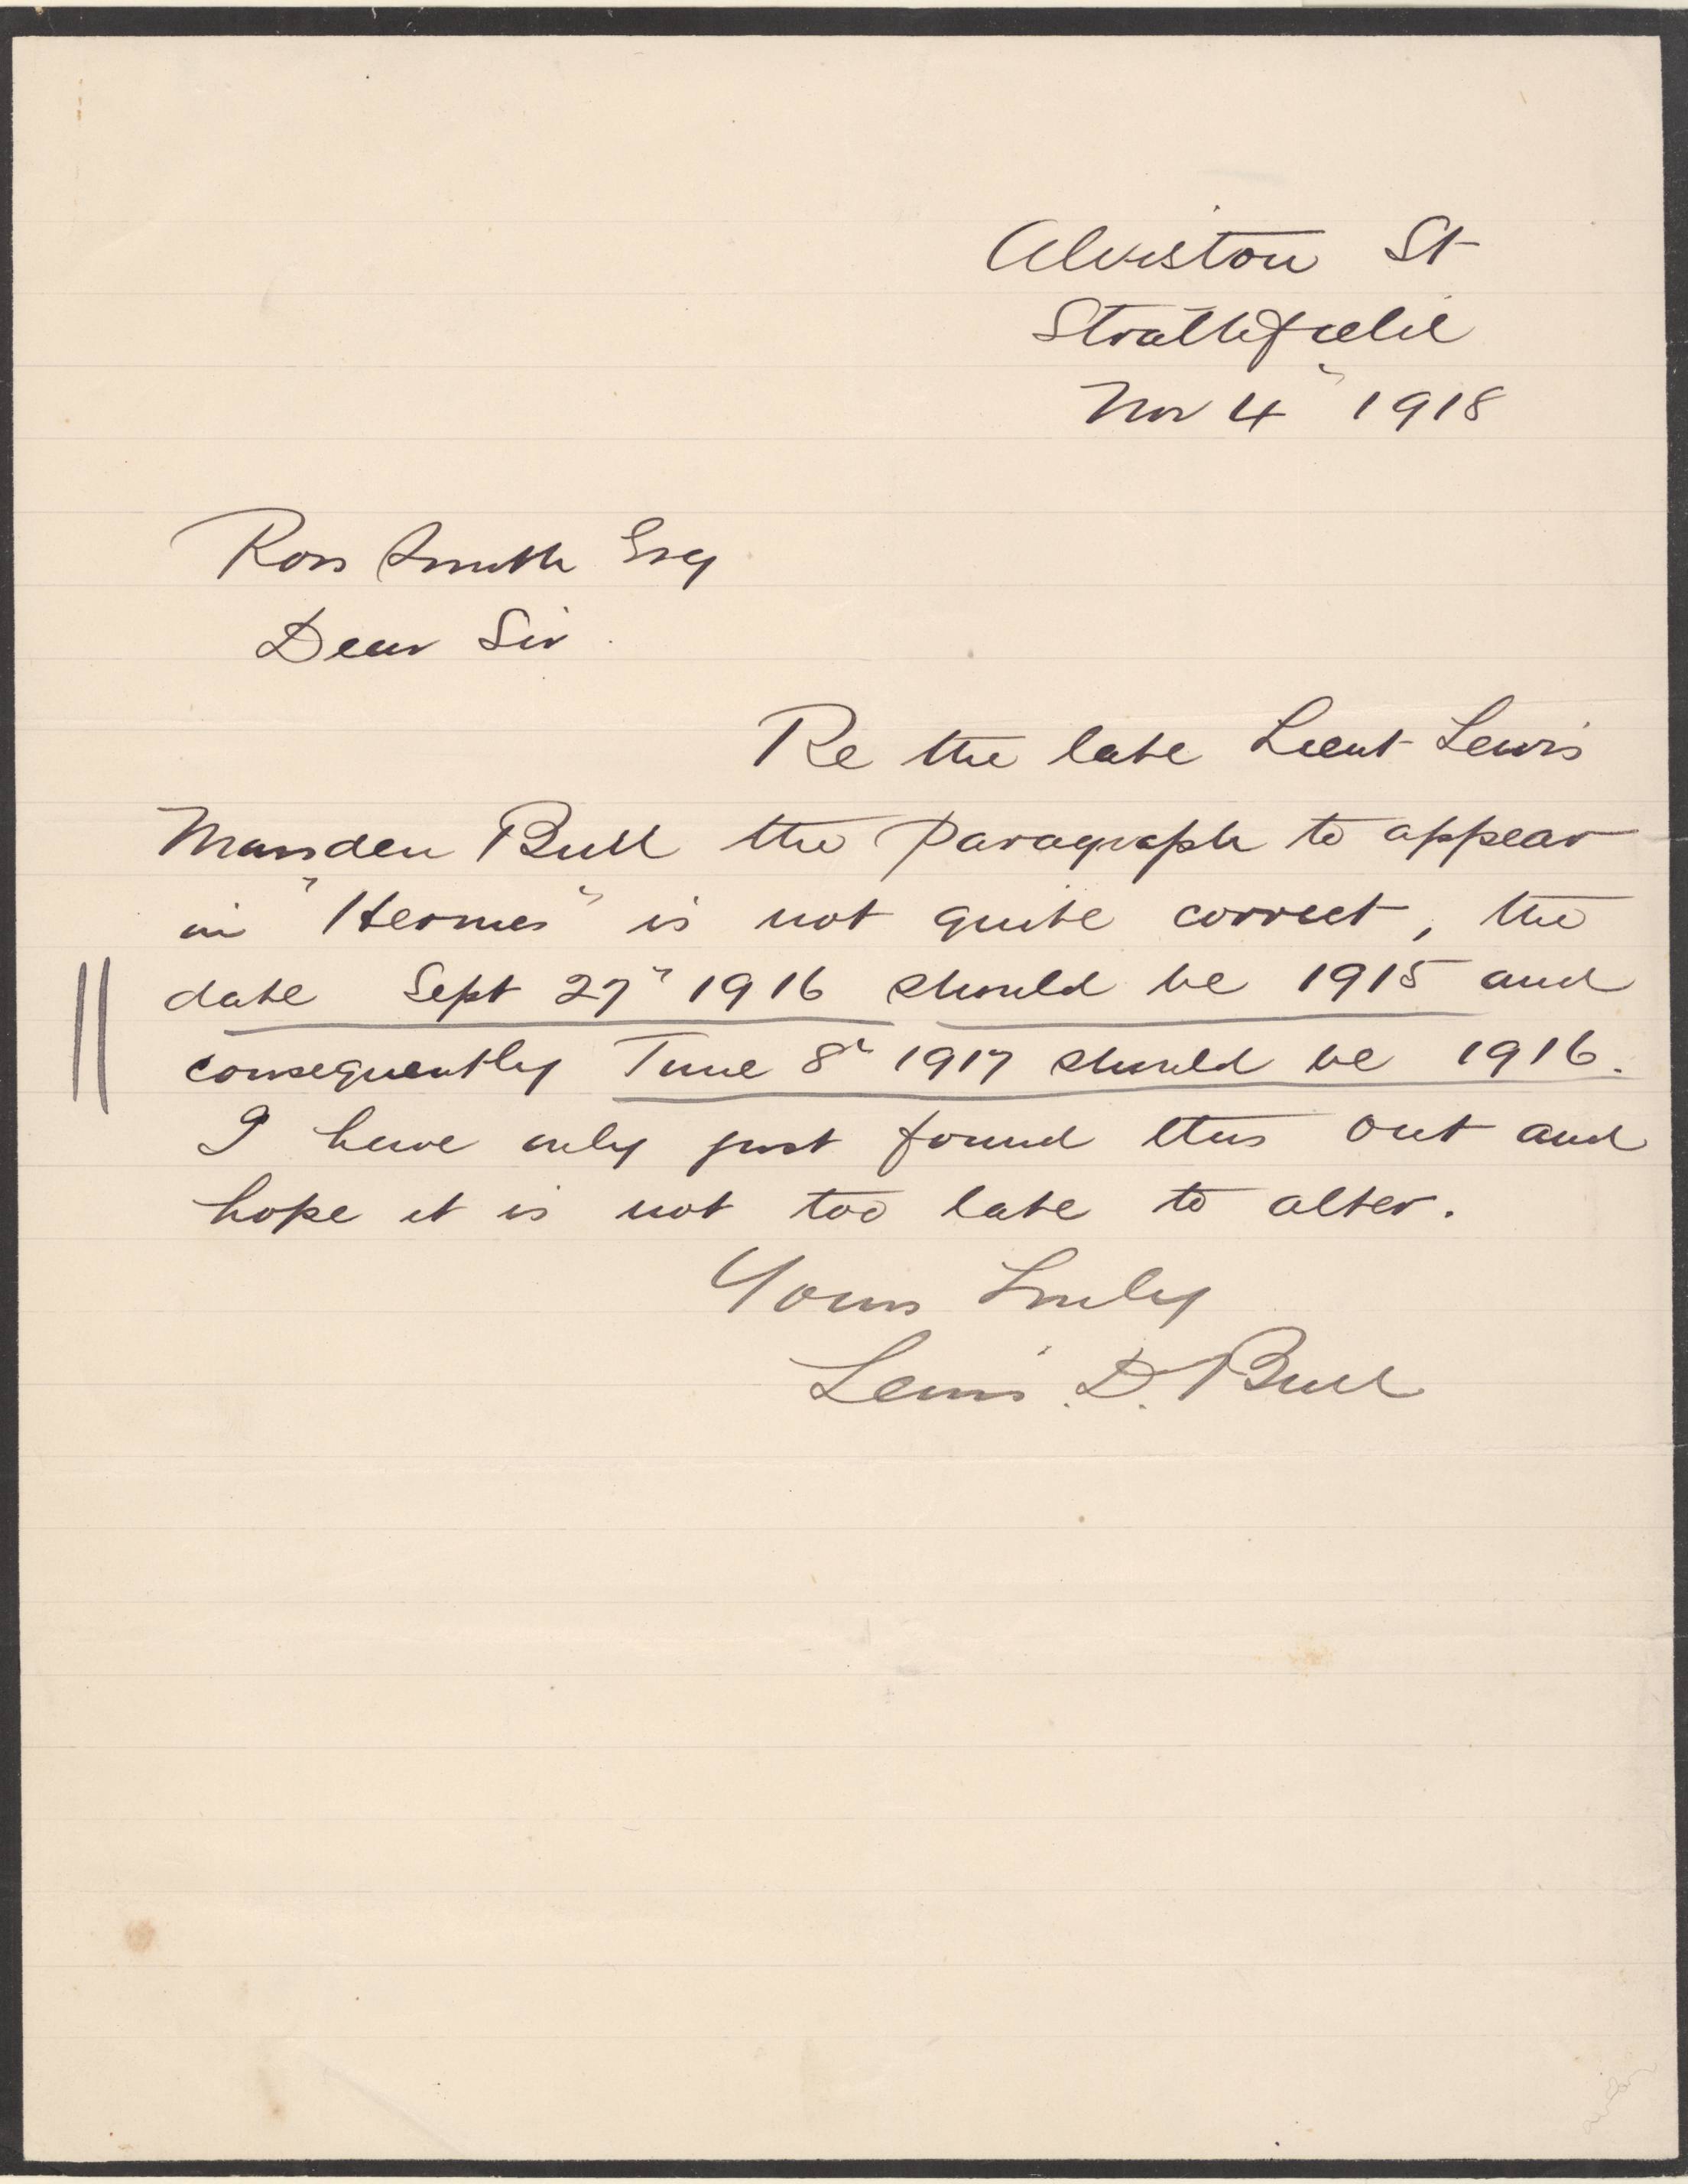 Alviston St
Strathfield
Nov 4" 1918
Ross Smith Esq
Dear Sir.
Re the late Lieut Lewis
Marsden Bull the Paragraph to appear
in "Hermes" is not quite correct, the
date Sept 27" 1916 should be 1915 and
consequently June 8" 1917 should be 1916.
I have only just found this out and
hope it is not too late to alter.
Yours Truly
Lewis. D. Bull